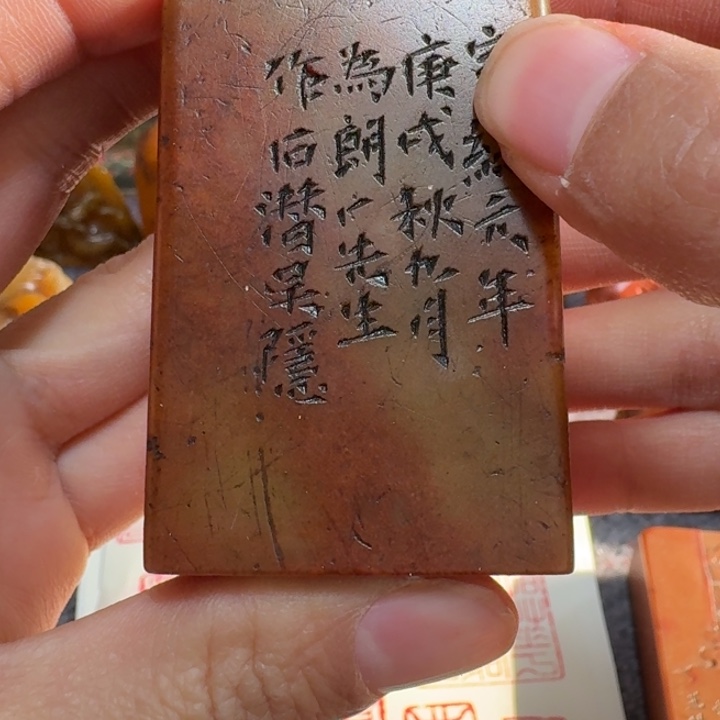 宣統元年
庚戌秋九月
為朗〻先生
作石潛吳隱